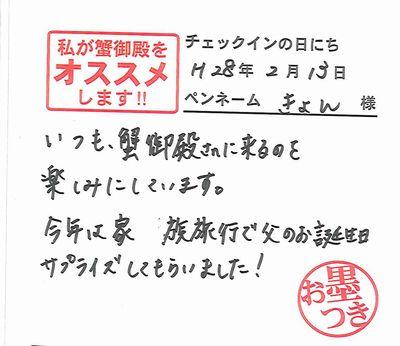 私が蟹御殿を
オススメ
します!!
チェックインの日にち
H28年2月13日
ペンネーム きょん 様
いつも、蟹御殿さんに来るのを
楽しみにしています。
今年は家 族旅行で父のお誕生日
サプライズしてもらいました!
お墨つき